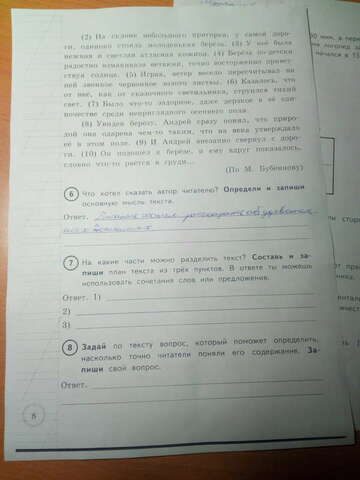 (2) На склоне небольшого пригорка, у самой доро-
ги, одиноко стояла молоденькая берёза. (3) У неё была
нежная и светлая атласная кожица. (4) Берёза по-детски
радостно взмахивала ветками, точно восторженно приветст-
вуя солнце. (5) Играя, ветер весело пересчитывал на
ней звонкое червонное золото листвы. (6) Казалось, что
от неё, как от сказочного светильника, струился тихий
свет. (7) Было что-то задорное, даже дерзкое в её оди-
ночестве среди неприглядного осеннего поля.
(8) Увидев берёзу, Андрей сразу понял, что приро-
дой она одарена чем-то таким, что на века утверждало
её в этом поле. (9) И Андрей внезапно свернул с доро-
ги. (10) Он подошёл к берёзе, и ему вдруг показалось,
словно что-то растёт в груди...
(По М. Бубеннову)
6 Что хотел сказать автор читателю? Определи и запиши
основную мысль текста.
Ответ.
7 На какие части можно разделить текст? Составь и за-
пиши план текста из трёх пунктов. В ответе ты можешь
использовать сочетания слов или предложения.
Ответ. 1)
2)
3)
8 Задай по тексту вопрос, который поможет определить,
насколько точно читатели поняли его содержание. За-
пиши свой вопрос.
Ответ.
8